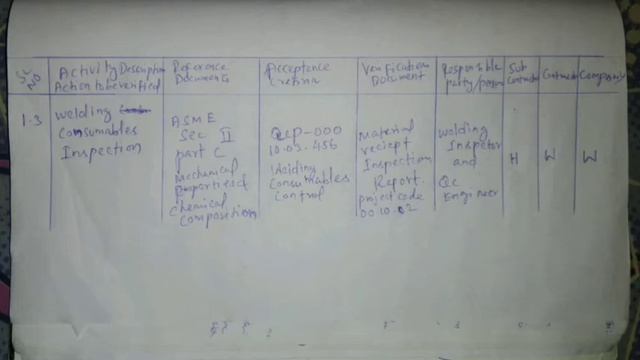 Sr NO
Activity Description
Action to be verified
Reference
Documents
Acceptance
Creteria
Verification
Document
Responsible
party/person
Sub
Contractor
Contractor
Company
1.3
Welding
Consumables
Inspection
ASME
Sec II
part C
Mechanical
Properties of
Chemical
Composition
QCP-000
10.03.456
Welding
Consumables
Control
Material
reciept
Inspection
Report.
project code
00 10.02
Welding
Inspector
and
QC
Engineer
H
W
W